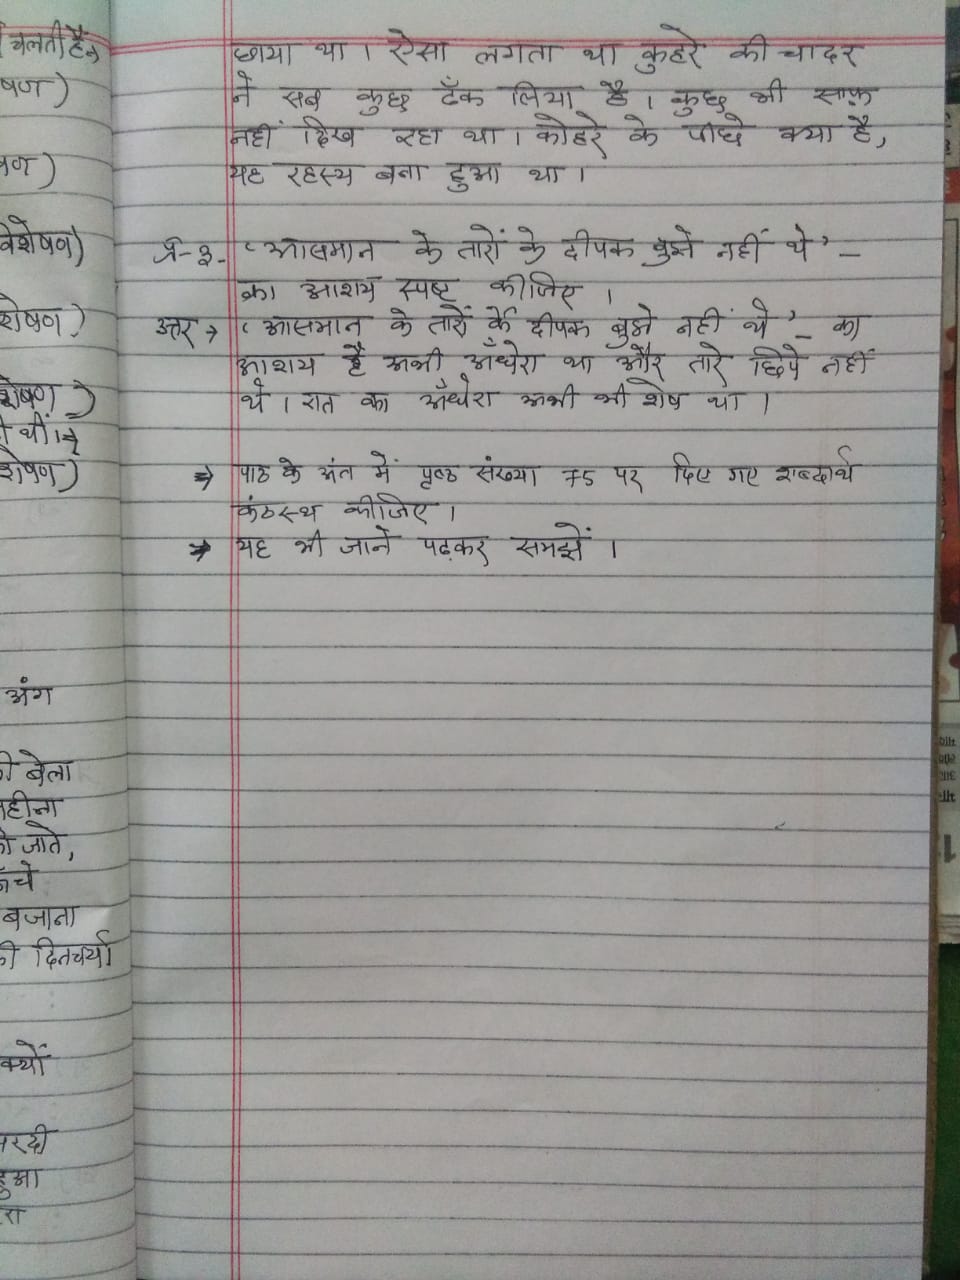 चलती है→
षण)
षण)
विशेषण)
शेषण)
शेषण)
थीं।→
शेषण)
अंग
की बेला
महीना
को जाते,
बजाना
की दिनचर्या
क्यों
सरदी
हुआ
छाया था। ऐसा लगता था कुहरे की चादर
ने सब कुछ ढँक लिया है। कुछ भी साफ़
नहीं दिख रहा था। कोहरे के पीछे क्या है,
यह रहस्य बना हुआ था।
प्र-३. 'आसमान के तारों के दीपक बुझे नहीं थे' –
का आशय स्पष्ट कीजिए।
उत्तर→ 'आसमान के तारों के दीपक बुझे नहीं थे' – का
आशय है अभी अँधेरा था और तारे छिपे नहीं
थे। रात का अँधेरा अभी भी शेष था।
⇒ पाठ के अंत में पृष्ठ संख्या 75 पर दिए गए शब्दार्थ
कंठस्थ कीजिए।
⇒ यह भी जानें पढ़कर समझें।